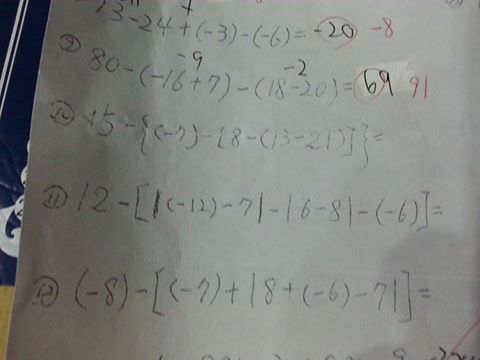 13-24+(-3)-(-6)=-20 -8
⑨ 80-(-16+7)-(18-20)=69 91
-9 -2
⑩ 15-{(-7)-[8-(13-21)]}=
⑪ 12-[|(-12)-7|-|6-8|-(-6)]=
⑫ (-8)-[(-7)+|8+(-6)-7|]=